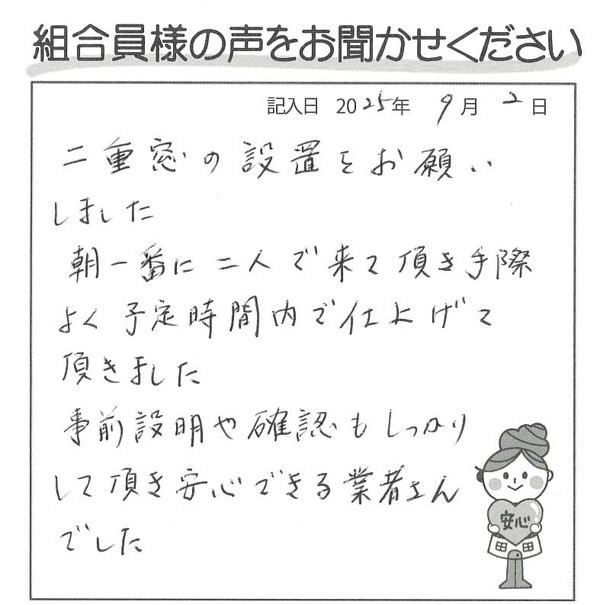 組合員様の声をお聞かせください
記入日 2025年 9月 2日
二重窓の設置をお願い
しました
朝一番に二人で来て頂き手際
よく予定時間内で仕上げて
頂きました
事前設明や確認もしっかり
して頂き安心できる業者さん
でした
安心